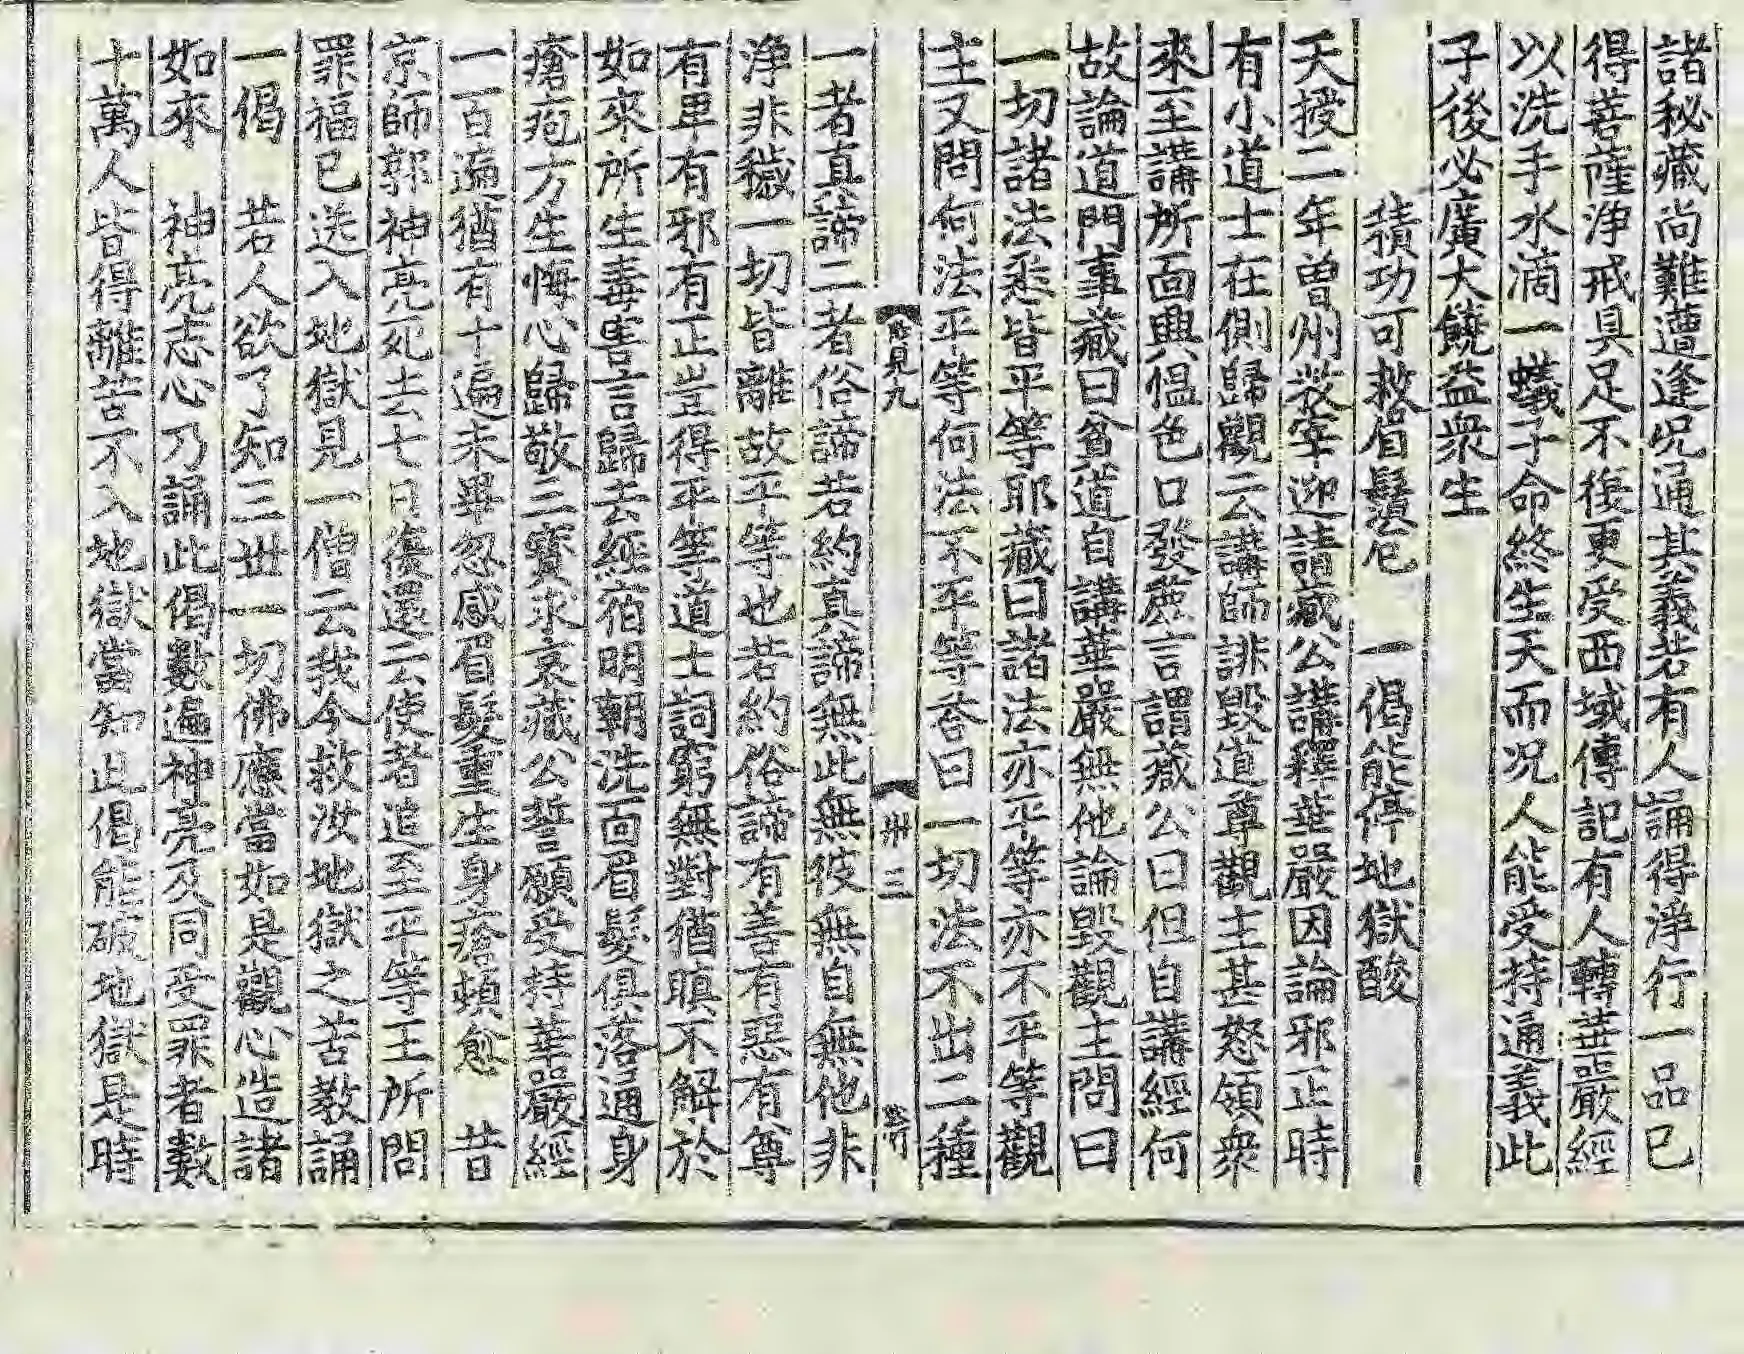 諸秘藏尚難遭逢况通其義若有人誦得淨行一品已
得菩薩淨戒具足不復更受西域傳記有人轉華嚴經
以洗手水滴一蟻子命終生天而况人能受持通義此
子後必廣大饒益衆生
積功可救眉鬚㞃　一偈能停地獄酸
天授二年曽州牧宰迎請藏公講釋華嚴因論邪正時
有小道士在側歸觀云講師誹毀道尊觀主甚怒領衆
來至講所面興愠色口發麁言謂藏公曰但自講經何
故論道門事藏曰貧道自講華嚴無他論毀觀主問曰
一切諸法悉皆平等耶藏曰諸法亦平等亦不平等觀
主又問何法平等何法不平等荅曰一切法不出二種
見九　卅三
一者真諦二者俗諦若約真諦無此無彼無自無他非
淨非穢一切皆離故平等也若約俗諦有善有惡有尊
有卑有邪有正豈得平等道士詞窮無對猶瞋不解於
如來所生毒害言歸去經宿明朝洗面眉髮俱落通身
瘡疱方生悔心歸敬三寶求哀藏公誓願受持華嚴經
一百遍猶有十遍未畢忽感眉髮重生身瘡頓愈　昔
京師郭神亮死去七日復還云使者追至平等王所問
罪福已送入地獄見一僧云我今救汝地獄之苦教誦
一偈　若人欲了知三世一切佛應當如是觀心造諸
如來　神亮志心乃誦此偈數遍神亮及同受罪者數
十萬人皆得離苦不入地獄當知此偈能破地獄是時